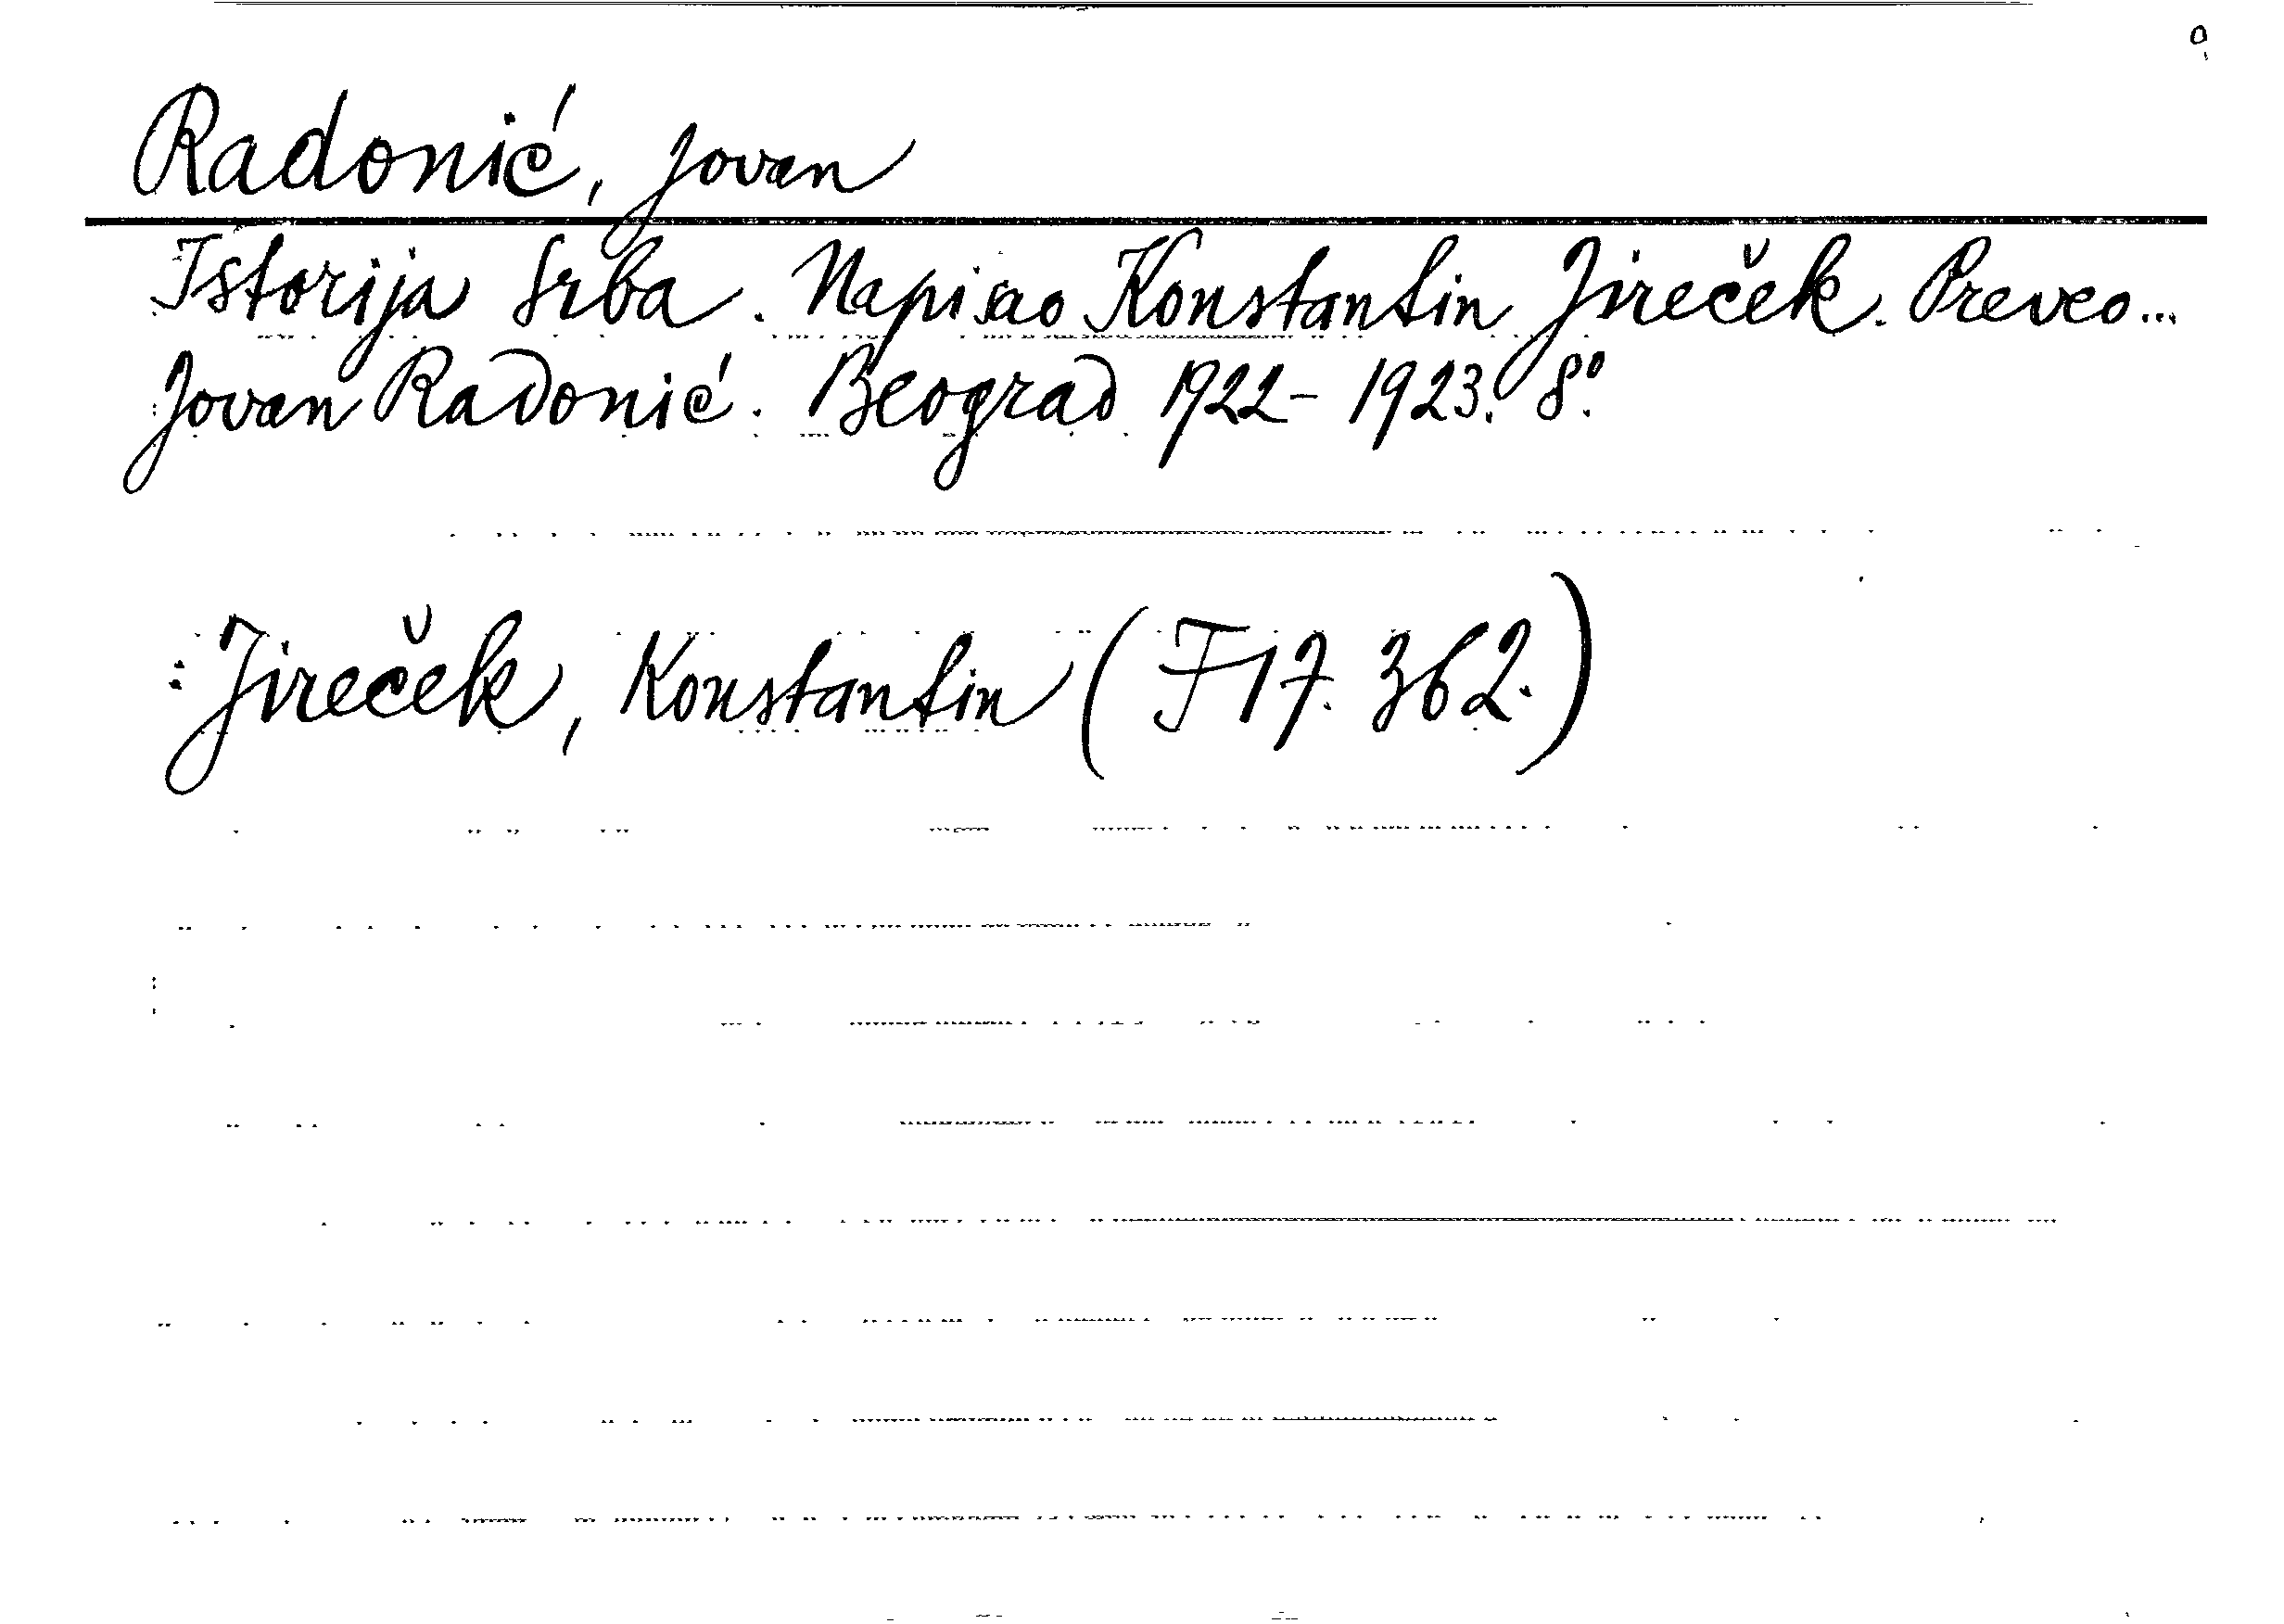 Radonić, Jovan
Istorija Srba. Napisao Konstantin Jireček. Preveo...
Jovan Radonić. Beograd 1922-1923. 8º.
Jireček, Konstantin (F17.362.)